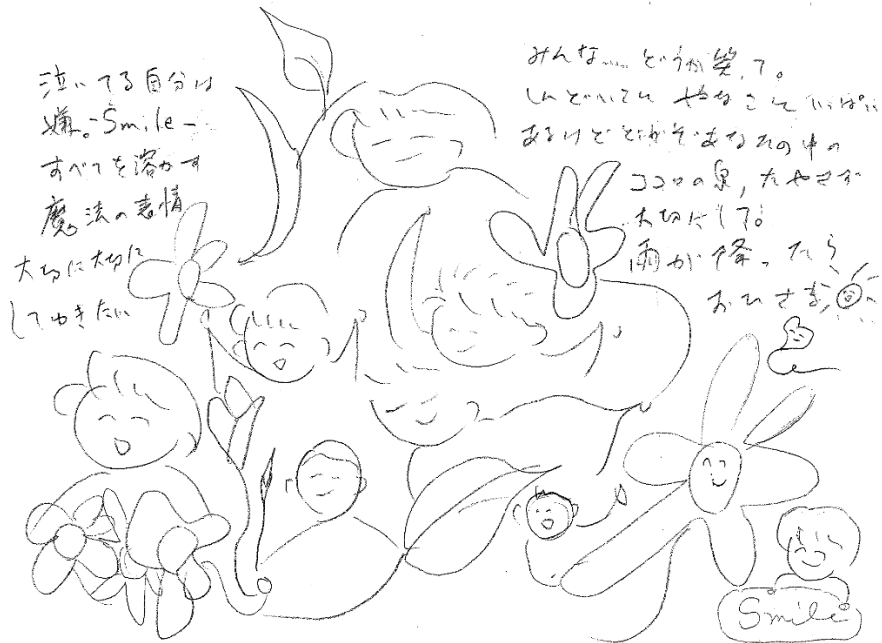 泣いてる自分は
嫌。-Smile-
すべてを溶かす
魔法の表情
大切に大切に
してゆきたい
みんな……どうか笑って。
しんどいことや なこといっぱい
あるけどどうかあなたの中の
ココロの泉,たやさず
大切にして。
雨が降ったら
おひさま,
Smile